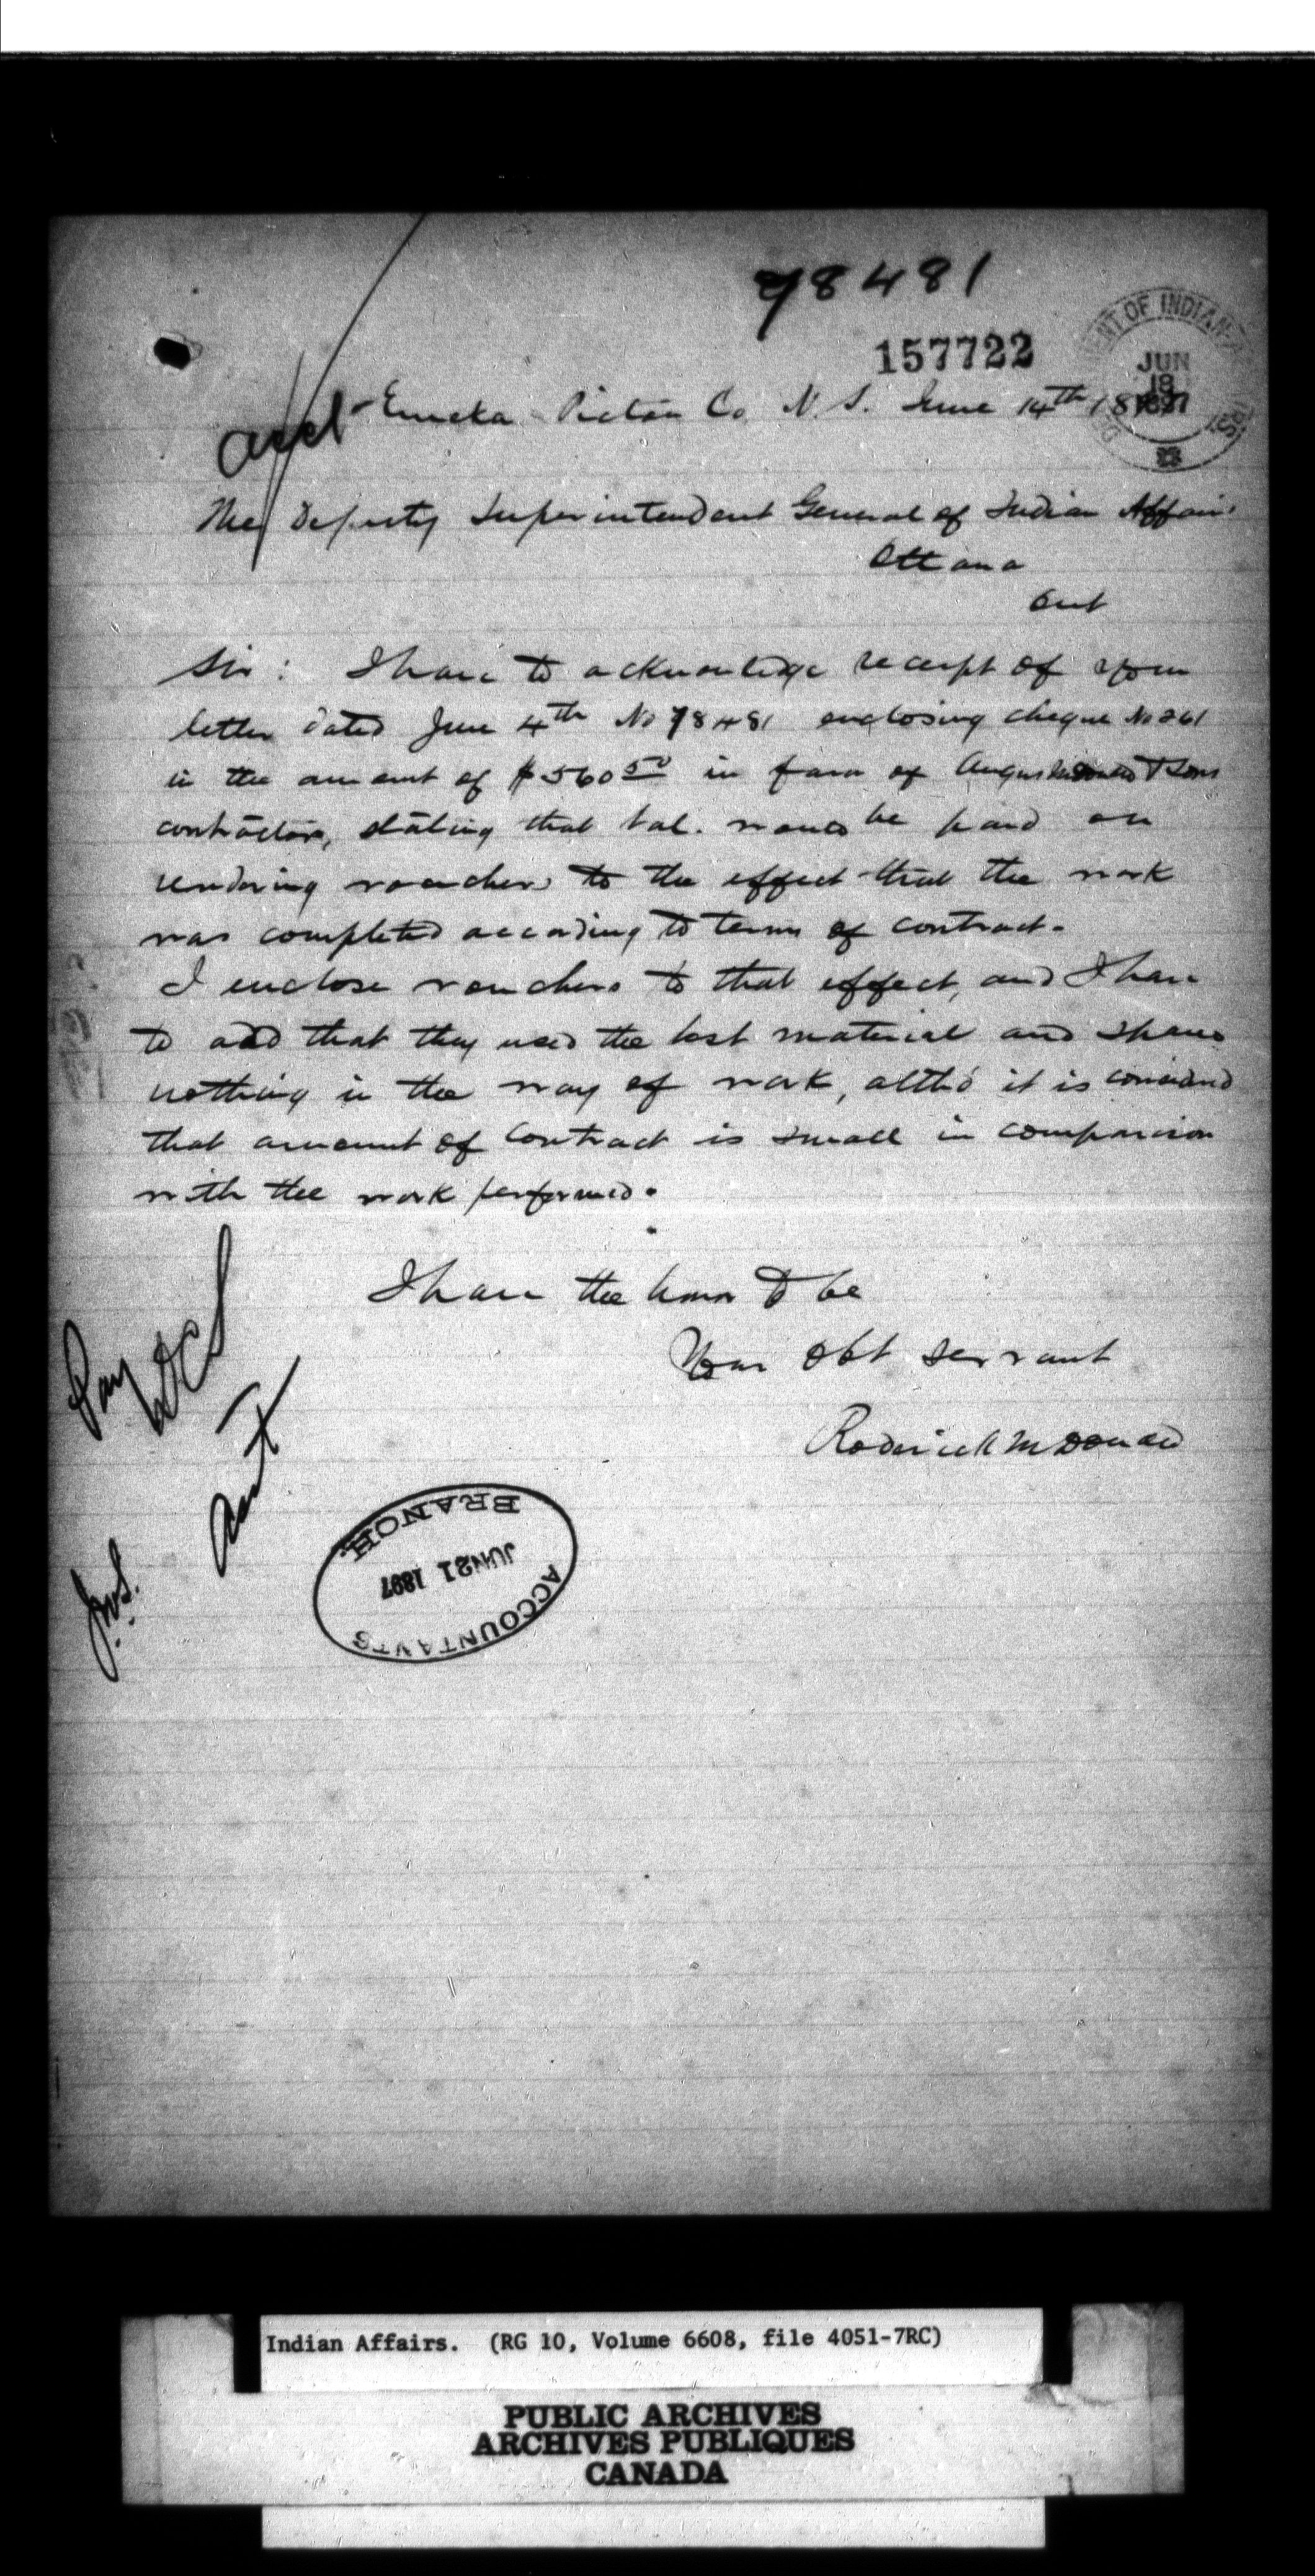 78481
157722
DEPARTMENT OF INDIAN AFFAIRS
JUN
18
1897
Acct
Eureka Pictou Co. N. S. June 14th 1897
The Deputy Superintendent General of Indian Affairs
Ottawa
Ont
Sir: I have to acknowledge receipt of your
letter dated June 4th No 78481 enclosing cheque No 261
in the amount of $560 50 in favor of Angus McDonald & Sons
contractors, stating that bal. would be paid on
rendering vouchers to the effect that the work
was completed according to terms of contract.
I enclose vouchers to that effect, and I have
to add that they used the best material and
nothing in the way of work, altho' it is considered
that amount of contract is small in comparison
with the work performed.
I have the honor to be
Your Obt servant
Roderick McDonald
Pay
acct
ACCOUNTANTS
JUN 21 1897
BRANCH.
Indian Affairs. (RG 10, Volume 6608, file 4051-7RC)
PUBLIC ARCHIVES
ARCHIVES PUBLIQUES
CANADA